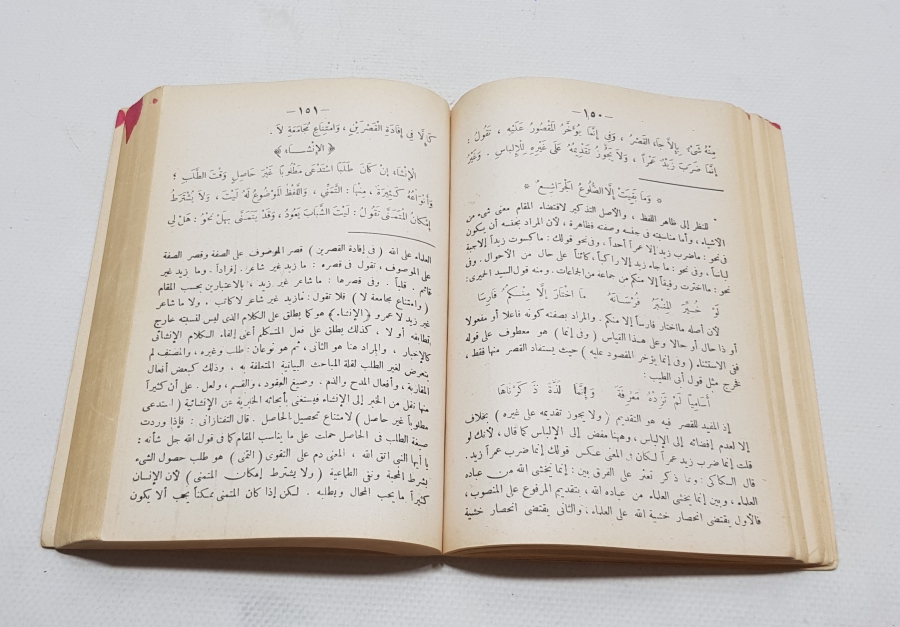 -١٥٠-
مِنْهُ شَىْءٌ بِإِلَّا جَاءَ القَصْرُ ، وَفِي إِنَّمَا يُؤَخَّرُ المَقْصُورُ عَلَيْهِ ، تَقُولُ :
إِنَّمَا ضَرَبَ زَيْدٌ عَمْراً ، وَلَا يَجُوزُ تَقْدِيمُهُ عَلَى غَيْرِهِ لِلْإِلْبَاسِ . وَغَيْرُ
* وَمَا بَقِيَتْ إِلَّا الضُّلُوعُ الجَرَاشِعُ *
للنظر إلى ظاهر اللفظ ، والأصل التذكير لاقتضاء المقام معنى شىء من
الأشياء ، وأما مناسبته فى جنسه وصفته فظاهرة ، لأن المراد بجنسه أن يكون
فى نحو : ماضرب زيد إلا عمراً أحداً ، وفى نحو قولك : ماكسوت زيداً إلاجبة
لباساً ، وفى نحو : ما جاء زيد إلا راكباً ، كائناً على حال من الأحوال . وفى
نحو : مااخترت رفيقاً إلا منكم من جماعة من الجماعات . ومنه قول السيد الحميرى :
لَوْ خُيِّرَ المِنْبَرُ فُرْسَانَهُ مَا اخْتَارَ إِلَّا مِنْكُمُ فَارِسًا
لأن أصله مااختار فارساً إلا منكم . والمراد بصفته كونه فاعلا أو مفعولا
أو ذا حال أو حالا وعلى هذا القياس ( وفى إنما ) هو معطوف على قوله
ففى الاستثناء ( وفى إنما يؤخر المقصود عليه ) حيث يستفاد القصر منها فقط ،
نخرج مثل قول أبى الطيب :
أَسَامِيًا لَمْ تَزِدْهُ مَعْرِفَةً وَإِنَّمَا لَذَّةً ذَكَرْنَاهَا
إذ المفيد للقصر فيه هو التقديم ( ولا يجوز تقديمه على غيره ) بخلاف
إلا لعدم إفضائه إلى الإلباس ، وههنا مفض إلى الإلباس كما قال ، لأنك لو
قلت إنما ضرب زيد عمراً لكان فى المعنى عكس قولك إنما ضرب عمراً زيد .
قال السكاكى : ومما ذكر تعثر على الفرق بين : إنما يخشى الله من عباده
العلماء ، وبين إنما يخشى العلماء من عباده الله ، بتقديم المرفوع على المنصوب ،
فالأول يقتضى انحصار خشية الله على العلماء ، والثانى يقتضى انحصار خشية
-١٥١-
كَإِلَّا فِي إِفَادَةِ القَصْرَيْنِ ، وَامْتِنَاعِ مُجَامَعَةِ لَا .
﴿ الإِنْشَاء ﴾
الإِنْشَاءُ إِنْ كَانَ طَلَبًا اسْتَدْعَى مَطْلُوبًا غَيْرَ حَاصِلٍ وَقْتَ الطَّلَبِ ؛
وَأَنْوَاعُهُ كَثِيرَةٌ ، مِنْهَا : التَّمَنِّي ، وَاللَّفْظُ المَوْضُوعُ لَهُ لَيْتَ ، وَلَا يُشْتَرَطُ
إِمْكَانُ المُتَمَنَّى تَقُولُ : لَيْتَ الشَّبَابَ يَعُودُ ، وَقَدْ يُتَمَنَّى بِهَلْ نَحْوُ : هَلْ لِي
العلماء على الله ( فى إفادة القصرين ) قصر الموصوف على الصفة وقصر الصفة
على الموصوف ، تقول فى قصره : ما زيد غير شاعر . إفراداً . وما زيد غير
قائم . قلباً . وفى قصرها : ما شاعر غير زيد ، بالاعتبارين بحسب المقام
( وامتناع مجامعة لا ) فلا تقول : مازيد غير شاعر لاكاتب ، ولا ما شاعر
غير زيد لا عمرو ﴿ الإنشاء ﴾ هو كما يطلق على الكلام الذى ليس لنسبته خارج
تطابقه أو لا ، كذلك يطلق على فعل المتكلم أعنى إلقاء الكلام الإنشائى
كالإخبار ، والمراد هنا هو الثانى ، ثم هو نوعان : طلب وغيره ، والمصنف لم
يتعرض لغير الطلب لقلة المباحث البيانية المتعلقة به ، وذلك كبعض أفعال
المقاربة ، وأفعال المدح والذم . وصيغ العقود ، والقسم ، ولعل . على أن كثيراً
منها نقل من الخبر إلى الإنشاء فيستغنى بأبحاثه الخبرية عن الإنشائية ( استدعى
مطلوباً غير حاصل ) لامتناع تحصيل الحاصل . قال التفتازانى : فإذا وردت
صيغة الطلب فى الحاصل حملت على ما يناسب المقام كما فى قول الله جل شأنه :
يا أيها النبى اتق الله ، المعنى دم على التقوى ( التمنى ) هو طلب حصول الشىء
بشرط المحبة ونفى الطماعية ( ولا يشترط إمكان المتمنى ) لأن الإنسان
كثيراً ما يحب المحال ويطلبه . لكن إذا كان المتمنى ممكناً يجب ألا يكون